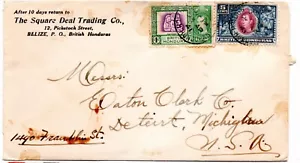 After 10 days return to
The Square Deal Trading Co.,
12, Pickstock Street,
BELIZE, P. O., British Honduras
Messrs.
Eaton Clark Co.
1490 Franklin St.
Detroit, Michigan
U. S. A.